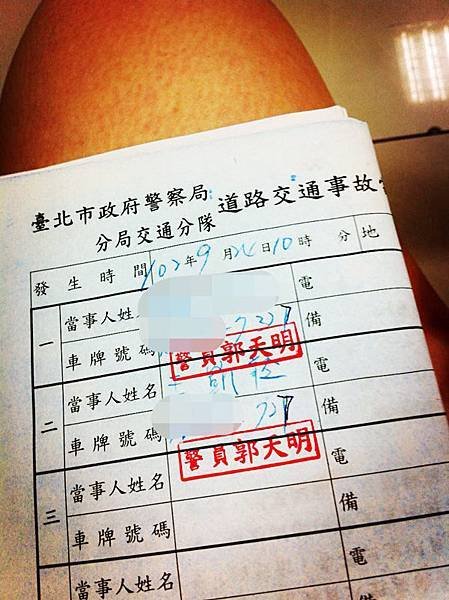 臺北市政府警察局
分局交通分隊
道路交通事故
發生時間 102年9月24日10時 分 地
一 當事人姓名 電
車牌號碼 備
警員郭天明
二 當事人姓名 電
車牌號碼 備
警員郭天明
三 當事人姓名 電
車牌號碼 備
當事人姓名 電